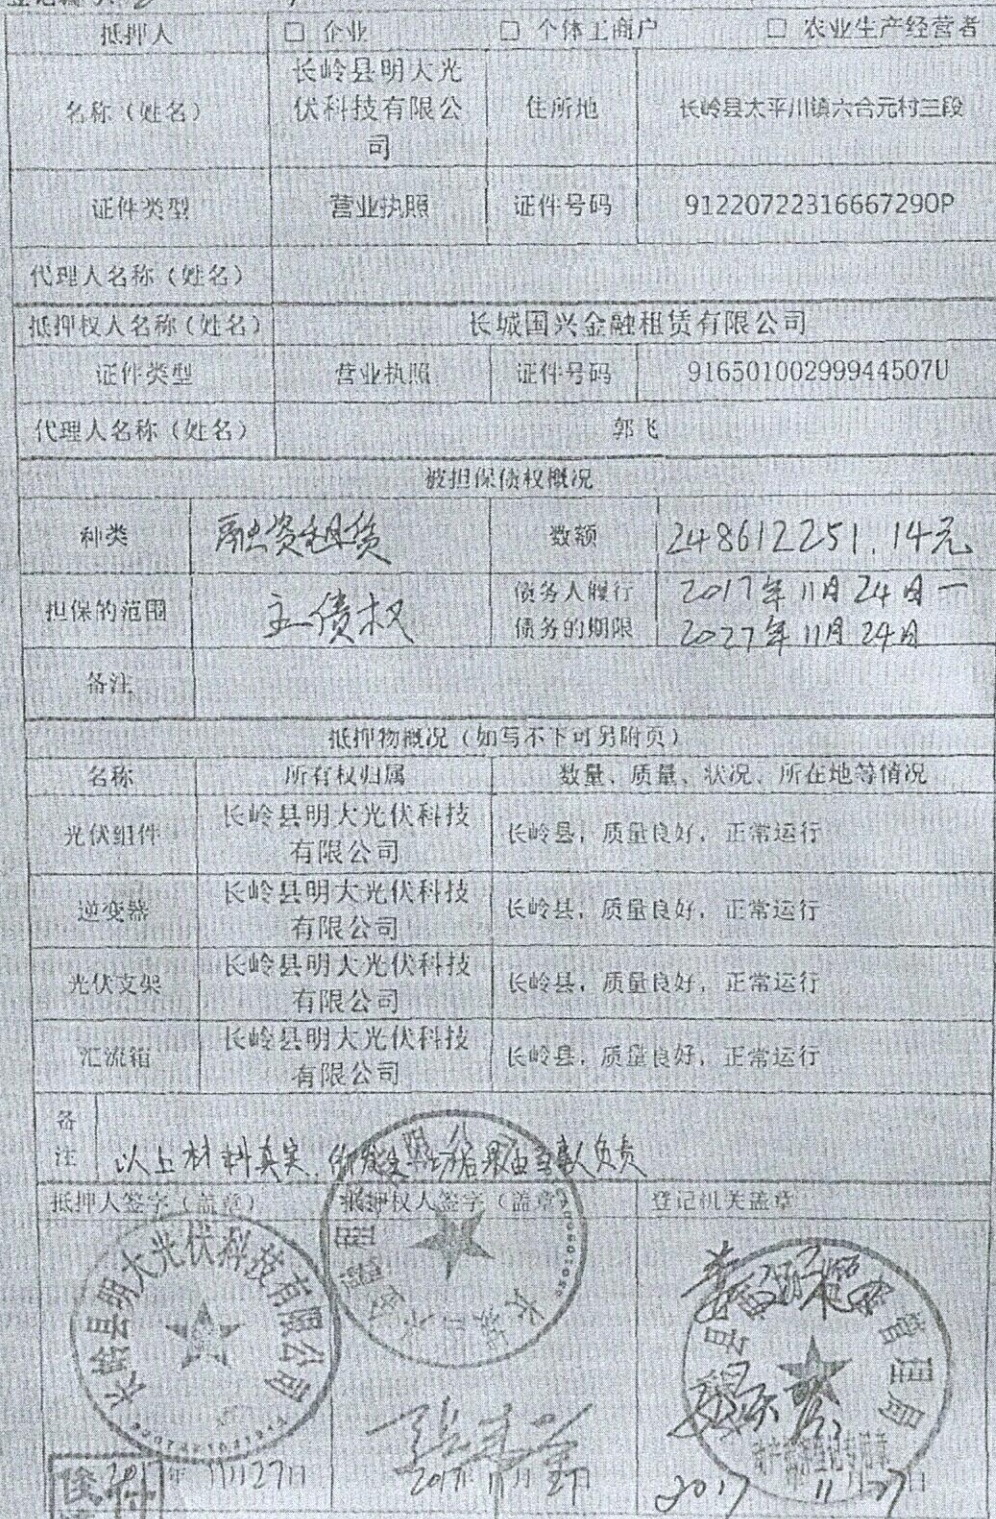 抵押人 □ 企业 □ 个体工商户 □ 农业生产经营者
名称（姓名） 长岭县明大光伏科技有限公司 住所地 长岭县太平川镇六合元村三段
证件类型 营业执照 证件号码 91220722316667290P
代理人名称（姓名）
抵押权人名称（姓名） 长城国兴金融租赁有限公司
证件类型 营业执照 证件号码 91650100299944507U
代理人名称（姓名） 郭飞
被担保债权概况
种类 融资租赁 数额 248612251.14元
担保的范围 主债权 债务人履行债务的期限 2017年11月24日—2027年11月24日
备注
抵押物概况（如写不下可另附页）
名称 所有权归属 数量、质量、状况、所在地等情况
光伏组件 长岭县明大光伏科技有限公司 长岭县，质量良好，正常运行
逆变器 长岭县明大光伏科技有限公司 长岭县，质量良好，正常运行
光伏支架 长岭县明大光伏科技有限公司 长岭县，质量良好，正常运行
汇流箱 长岭县明大光伏科技有限公司 长岭县，质量良好，正常运行
备注 以上材料真实，后果由当事人负责
抵押人签字（盖章） 抵押权人签字（盖章） 登记机关盖章
长岭县明大光伏科技有限公司
管理局
2017年11月27日 2017年11月27日 2017 11 27日